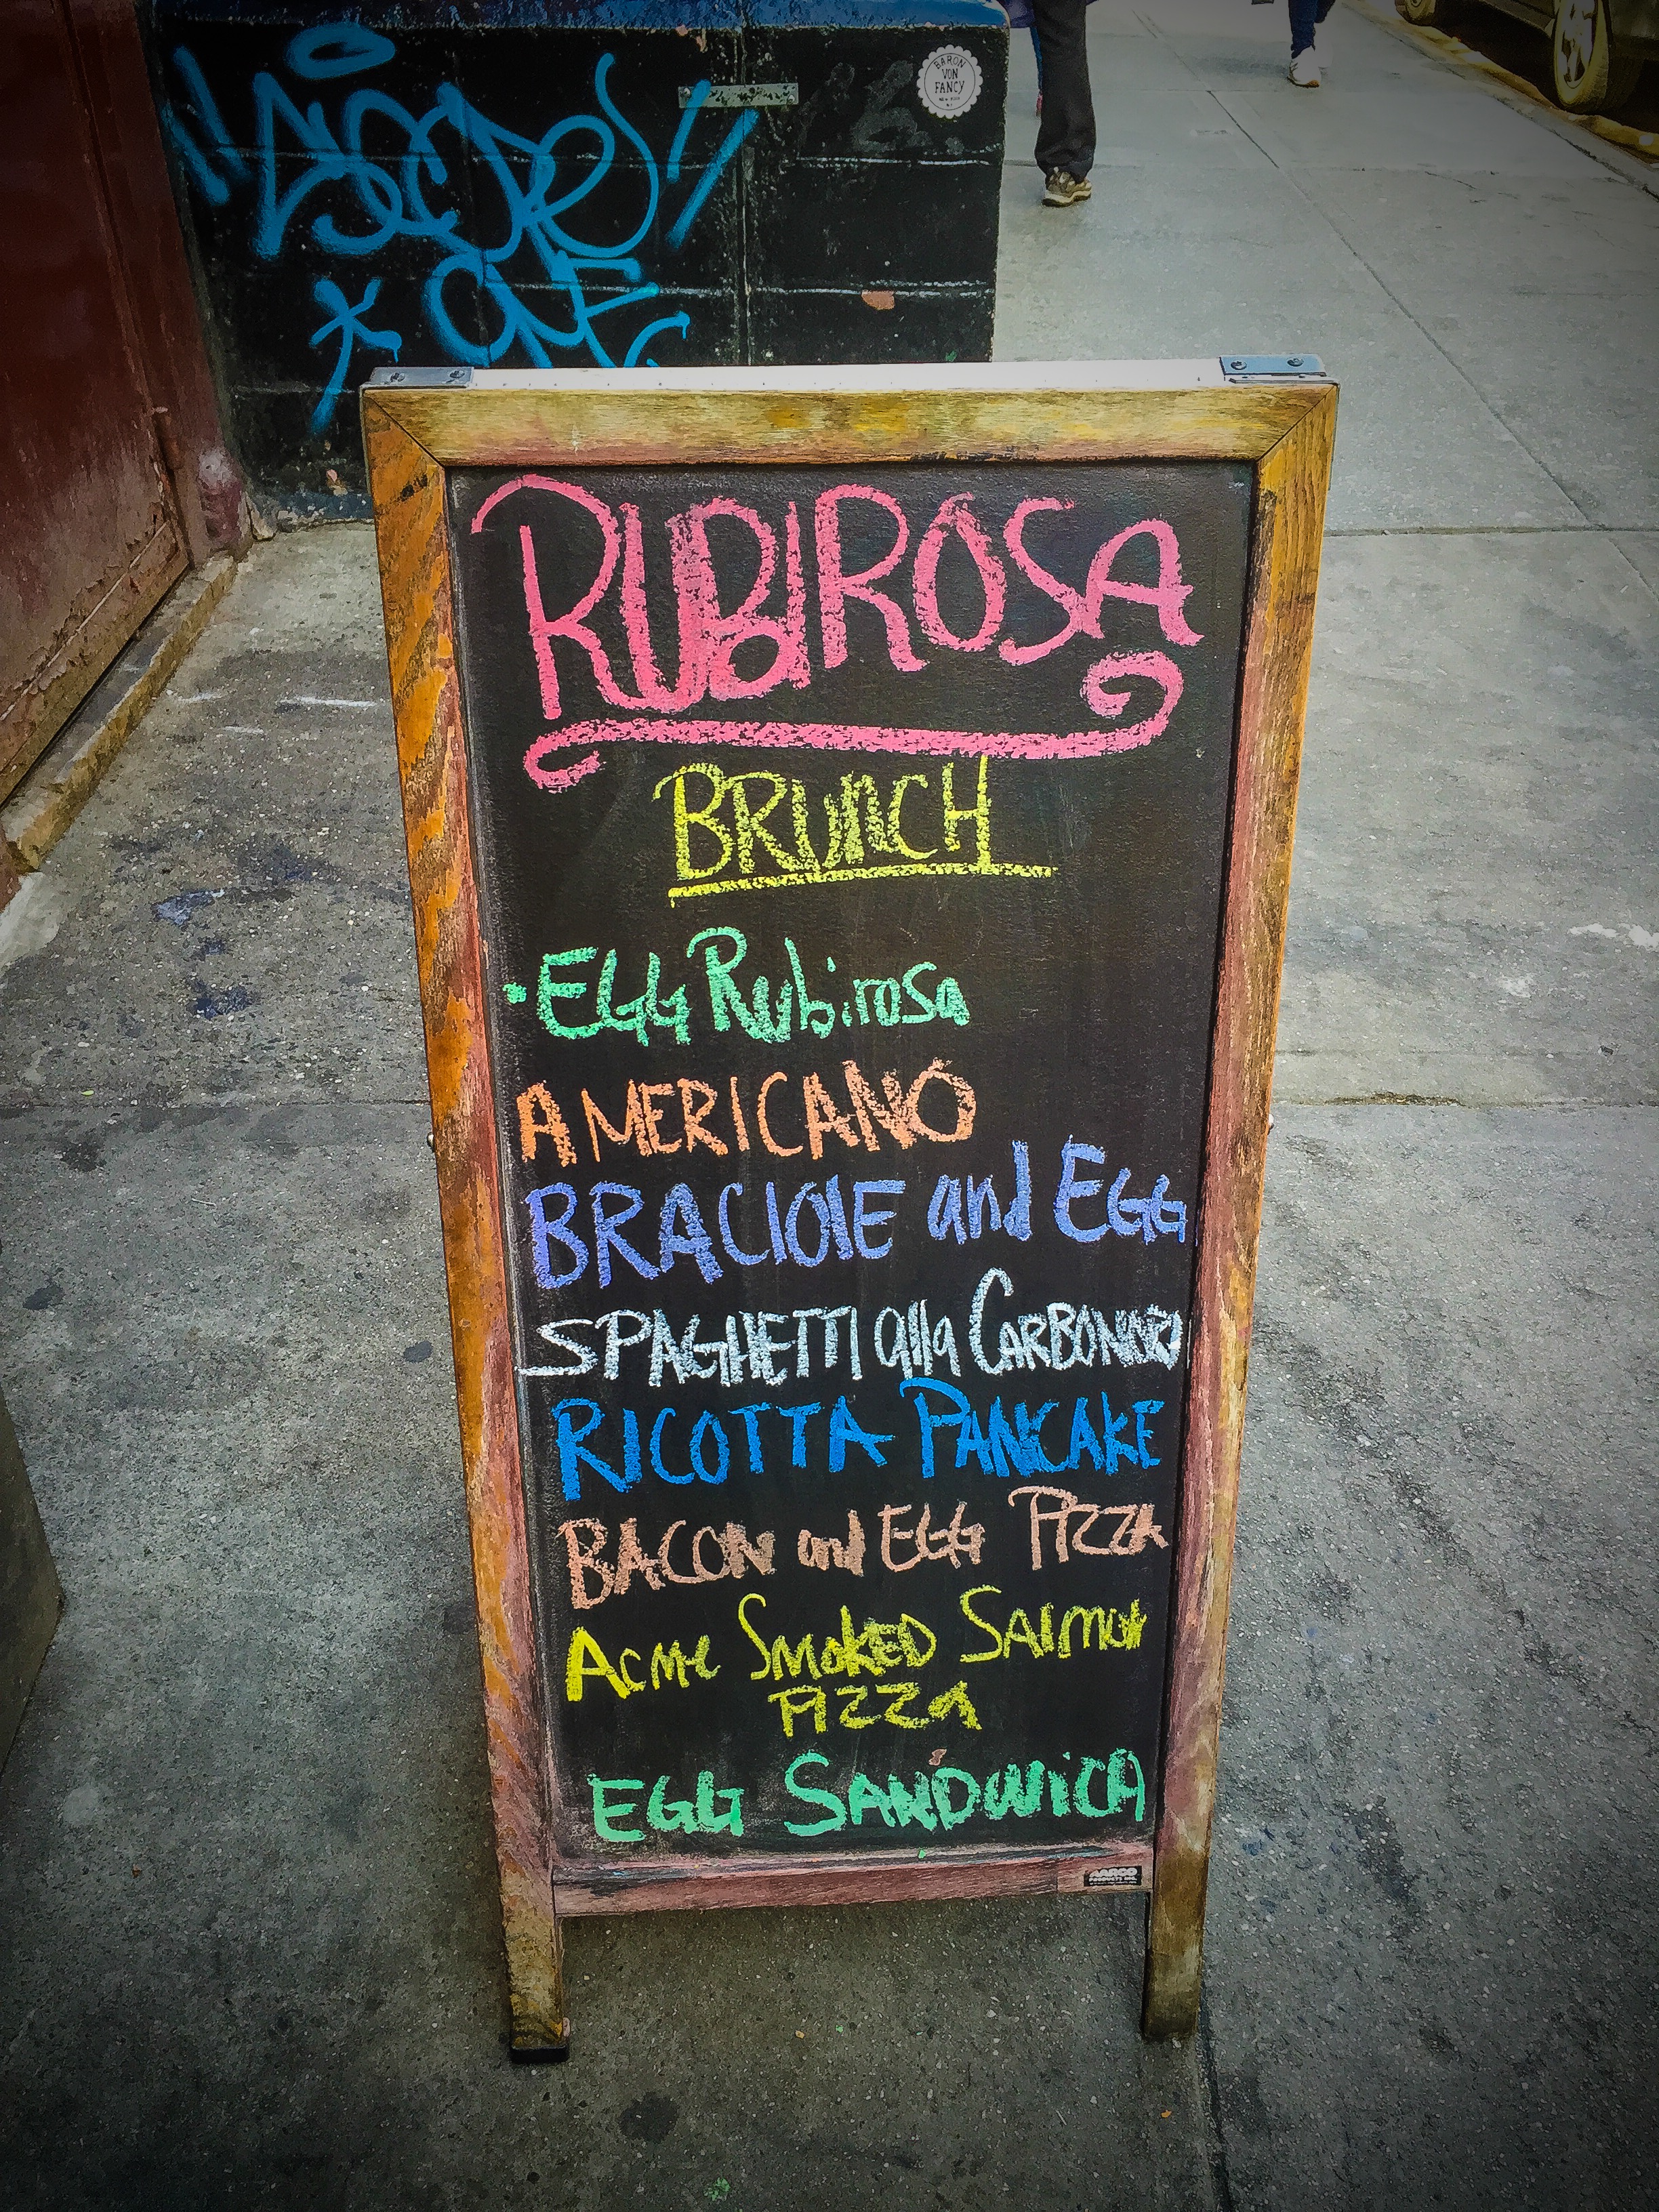 BARON
VON
FANCY
NEW YORK
ONE
RUBIROSA
BRUNCH
·EGG Rubirosa
AMERICANO
BRACIOLE and EGG
SPAGHETTI alla CARBONARA
RICOTTA PANCAKE
BACON and EGG PIZZA
Acme SmokED SAlmon
PIZZA
EGG SANDWICH
AARCO
PRODUCTS INC.